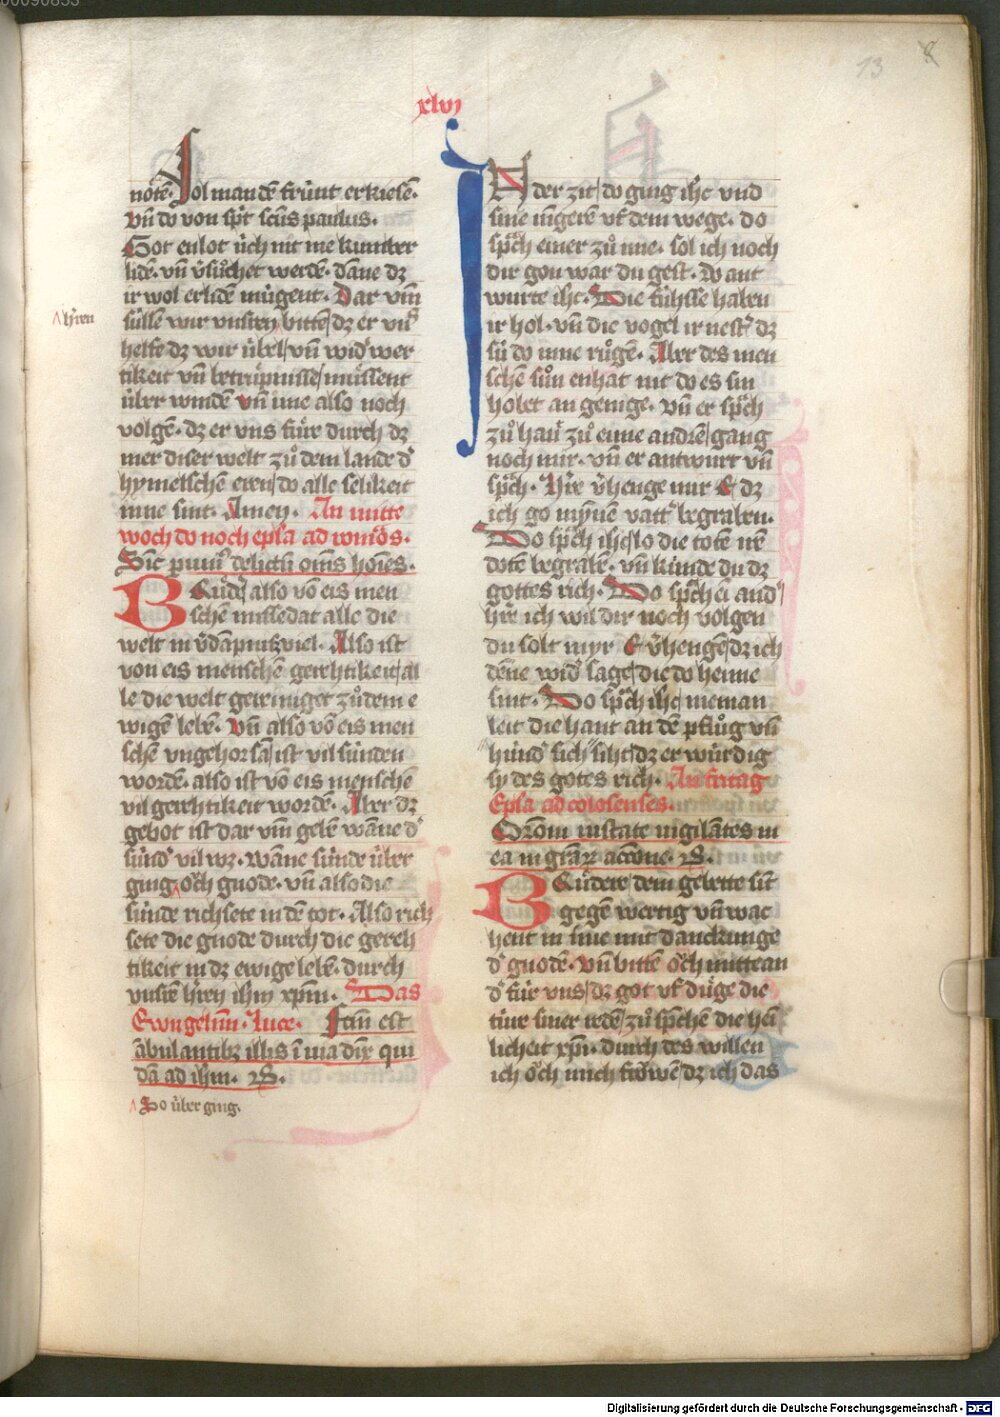 00090853
13 8
xlvj
noten. sol man dē frünt erkiesē.
vn̄ do von sp̄t sc̄us paulus.
Got enlot üch nit me kumber
lidē. vn̄ v̄sůchet werdē. dāne dz
ir wol erlidē mügent. Dar vm̄
süllē wir vnsern bittē dz er vn̄s
ʌ h̓ren
helfe dz wir übel vn̄ wid̓wer
tikeit vn̄ betrüpnisse müssent
über windē vn̄ ime also noch
volgē. dz er vns für durch dz
mer diser welt zů dem lande d̓
hymelschē eren do alle selikeit
inne sint. Amen. An mitte
woch do noch epl̄a ad romās.
Sic̄ p unī delictū om̄s hōies.
Bruͤd̓ also vō eis men
schē missedat alle die
welt in v̓dāpnisz viel. Also ist
von eis menschē gerehtikeit al
le die welt gereiniget zů dem e
wigē lebē. Vn̄ also vō eis men
schē vngehorsā ist vil sünden
wordē. also ist vō eis menschē
vil gerehtikeit wordē. Aber dz
gebot ist dar vm̄ gebē wāne d̓
sünd̓ vil wz. wāne sünde über
ging ʌ och gnode. vn̄ also die
sünde richsete in dē tot. Also rich
sete die gnode durch die gereh
tikeit in dz ewige lebē. durch
vnsrē h̓ren ih̄m xp̄m. Das
Ewāgeliū. Luce. Factū est
ābulantibꝫ illis ī via dix̄ qui
dā ad ih̄m. R.
ʌ So über ging.
IN der zit do ging ih̄c vnd
sine iūgerē vf dem wege. do
sp̄ch einer zů ime. sol ich noch
dir gon war du gest. do ant
wurte ih̄c. Die fühsse haben
ir hol. vn̄ die vogel ir nest dz
sü do inne růgē. Aber des men
schē sůn enhat nit do es sin
hobet an genige. vn̄ er sp̄ch
zů hā zů eime andrē gang
noch mir. vn̄ er antwurt vn̄
sp̄ch. H̓re v̓henge mir E dz
ich go mynē vatt̓ begraben.
Do sp̄ch ih̄c lo die totē ire
dotē begrabē. vn̄ künde du dz
gottes rich. Do sp̄ch ei and̓
h̓re ich wil dir noch volgen
du solt myr E v̓hengē dz ich
dēne wid̓ sage die do heime
sint. Do sp̄ch ih̄c nieman
leit die hant an dē pflůg vn̄
hind̓ sich siht dz er würdig
sy des gotes rich. An fritag
Epl̄a ad colosenses.
Orōni instate uigilātes in
ea in gr̄aꝝ accōne. R.
Bruͤdere dem gebette sit̄
gegē wertig vn̄ wac
hent in ime mit danckunge
d̓ gnodē. vn̄ bittē och mittean
d̓ für vns dz got vf duͤge die
türe siner redē zů sp̄chen die hei
licheit xp̄i. durch des willen
ich och mich frowē dz ich das
Digitalisierung gefördert durch die Deutsche Forschungsgemeinschaft - DFG